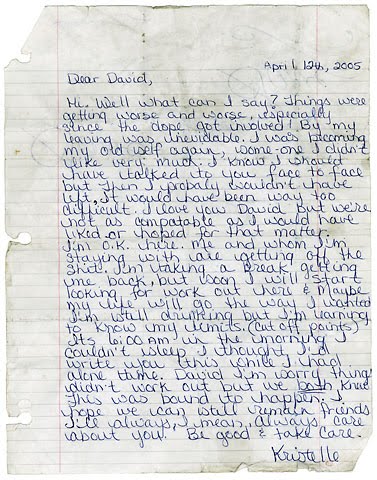 April 12th, 2005
Dear David,
Hi. Well what can I say? Things were
getting worse and worse, especially
since the dope got involved! By my
leaving was inevidable. I was becoming
my old self again, some-one I didn't
like very much. I know I should
have talked to you face to face
but then I probaly wouldn't have
left, It would have been way too
difficult. I love you David But we're
not as compatable as I would have
liked or hoped for that matter.
I'm O.K. here. me and whom I'm
staying with are getting off the
shit. I'm taking a break, getting
me back, but soon I will start
looking for work out here & Maybe
my life will go the way I wanted
I'm still drinking but I'm learning
to know my limits. (cut off points)
Its 6:00 AM in the morning I
couldn't sleep I thought I'd
write you this while I had
alone time. David I'm sorry things
didn't work out but we both knew
This was bound to happen. I
hope we can still remain friends
I'll always, I mean, Always, care
about you. Be good & take care.
Kristelle